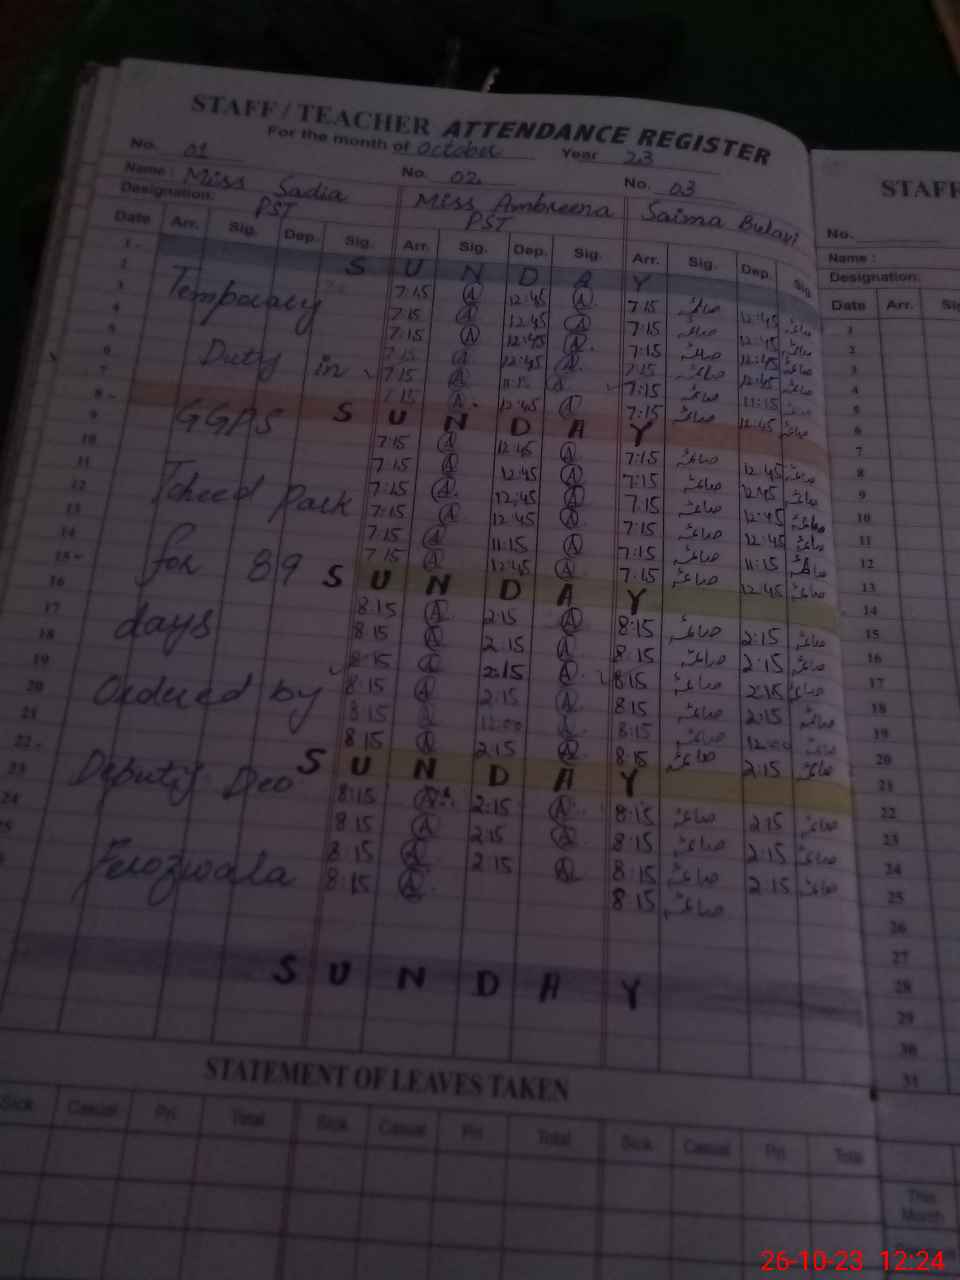 STAFF / TEACHER ATTENDANCE REGISTER
For the month of October Year 23
No. 01 No. 02 No. 03
Name : Miss Sadia Miss Ambreena Saima Bulavi
Designation: PST PST
Date Arr. Sig. Dep. Sig. Arr. Sig. Dep. Sig. Arr. Sig. Dep. Sig.
1 S U N D A Y
2 7:15 A 12:45 A 7:15 صائمہ 12:45 صائمہ
3 Temporary 7:15 A 12:45 A 7:15 صائمہ 12:45 صائمہ
4 7:15 A 12:45 A 7:15 صائمہ 12:45 صائمہ
5 7:15 A 12:45 A 7:15 صائمہ 12:45 صائمہ
6 Duty in 7:15 A 7:15 صائمہ 11:15
7 7:15 A 12:45 A 7:15 صائمہ 12:45 صائمہ
8 GGPS S U N D A Y
9 7:15 A 12:45 A 7:15 صائمہ 12:45 صائمہ
10 7:15 A 12:45 A 7:15 صائمہ 12:45 صائمہ
11 7:15 A 12:45 A 7:15 صائمہ 12:45 صائمہ
12 Park 7:15 A 12:45 A 7:15 صائمہ 12:45 صائمہ
13 7:15 A 11:15 A 7:15 صائمہ 11:15 صائمہ
14 7:15 A 12:45 A 7:15 صائمہ 12:45 صائمہ
15 for 89 S U N D A Y
16 8:15 A 2:15 A 8:15 صائمہ 2:15 صائمہ
17 days 8:15 A 2:15 A 8:15 صائمہ 2:15 صائمہ
18 8:15 A 2:15 A 8:15 صائمہ 2:15 صائمہ
19 Ordered by 8:15 A 2:15 A 8:15 صائمہ 2:15 صائمہ
20 8:15 A 12:00 8:15 صائمہ 12:00 صائمہ
21 8:15 A 2:15 A 8:15 صائمہ 2:15 صائمہ
22 Deputy Deo S U N D A Y
23 8:15 A 2:15 A 8:15 صائمہ 2:15 صائمہ
24 8:15 A 2:15 A 8:15 صائمہ 2:15 صائمہ
25 Ferozwala 8:15 A 2:15 A 8:15 صائمہ 2:15 صائمہ
8:15 A 8:15 صائمہ
S U N D A Y
STATEMENT OF LEAVES TAKEN
Sick Casual Pri Total Sick Casual Pri Total Sick Casual Pri Total
STAFF
No.
Name :
Designation:
Date Arr.
1
2
3
4
5
6
7
8
9
10
11
12
13
14
15
16
17
18
19
20
21
22
23
24
25
26
27
28
29
30
31
This
Month
26-10-23 12:24